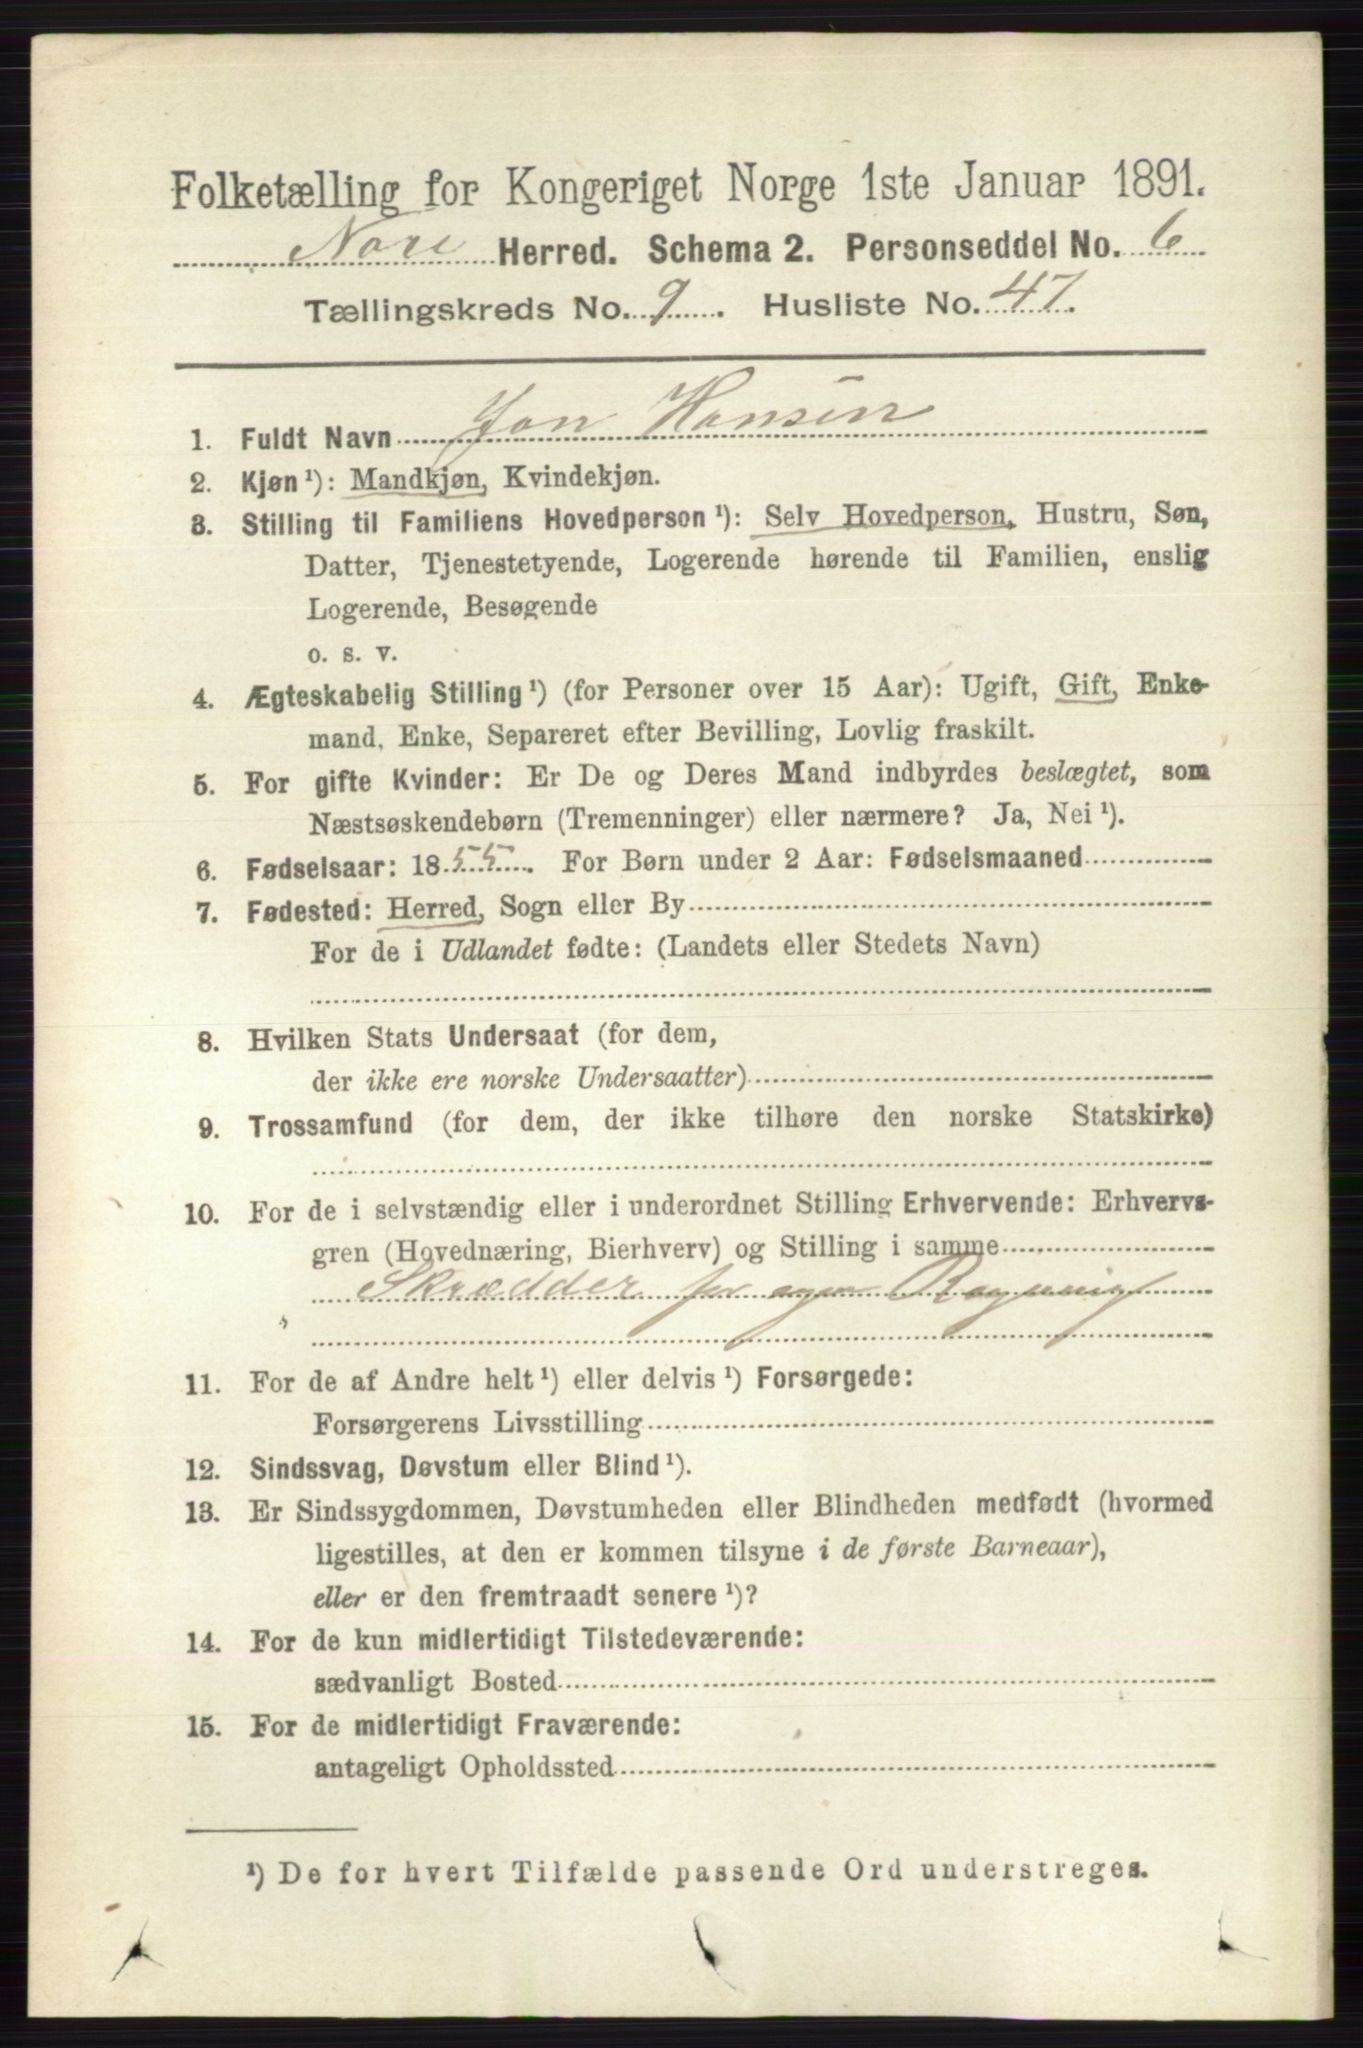 Folketælling for Kongeriget Norge 1ste Januar 1891.
Nore Herred. Schema 2. Personseddel No. 6
Tællingskreds No. 9. Husliste No. 47.
1. Fuldt Navn Jon Hansen
2. Kjøn ¹): Mandkjøn, Kvindekjøn.
3. Stilling til Familiens Hovedperson ¹): Selv Hovedperson, Hustru, Søn,
Datter, Tjenestetyende, Logerende hørende til Familien, enslig
Logerende, Besøgende
o. s. v.
4. Ægteskabelig Stilling ¹) (for Personer over 15 Aar): Ugift, Gift, Enke-
mand, Enke, Separeret efter Bevilling, Lovlig fraskilt.
5. For gifte Kvinder: Er De og Deres Mand indbyrdes beslægtet, som
Næstsøskendebørn (Tremenninger) eller nærmere? Ja, Nei ¹).
6. Fødselsaar: 1855. For Børn under 2 Aar: Fødselsmaaned
7. Fødested: Herred, Sogn eller By
For de i Udlandet fødte: (Landets eller Stedets Navn)
8. Hvilken Stats Undersaat (for dem,
der ikke ere norske Undersaatter)
9. Trossamfund (for dem, der ikke tilhøre den norske Statskirke)
10. For de i selvstændig eller i underordnet Stilling Erhvervende: Erhvervs-
gren (Hovednæring, Bierhverv) og Stilling i samme
Skrædder for egen Regning
11. For de af Andre helt ¹) eller delvis ¹) Forsørgede:
Forsørgerens Livsstilling
12. Sindssvag, Døvstum eller Blind ¹).
13. Er Sindssygdommen, Døvstumheden eller Blindheden medfødt (hvormed
ligestilles, at den er kommen tilsyne i de første Barneaar),
eller er den fremtraadt senere ¹)?
14. For de kun midlertidigt Tilstedeværende:
sædvanligt Bosted
15. For de midlertidigt Fraværende:
antageligt Opholdssted
¹) De for hvert Tilfælde passende Ord understreges.